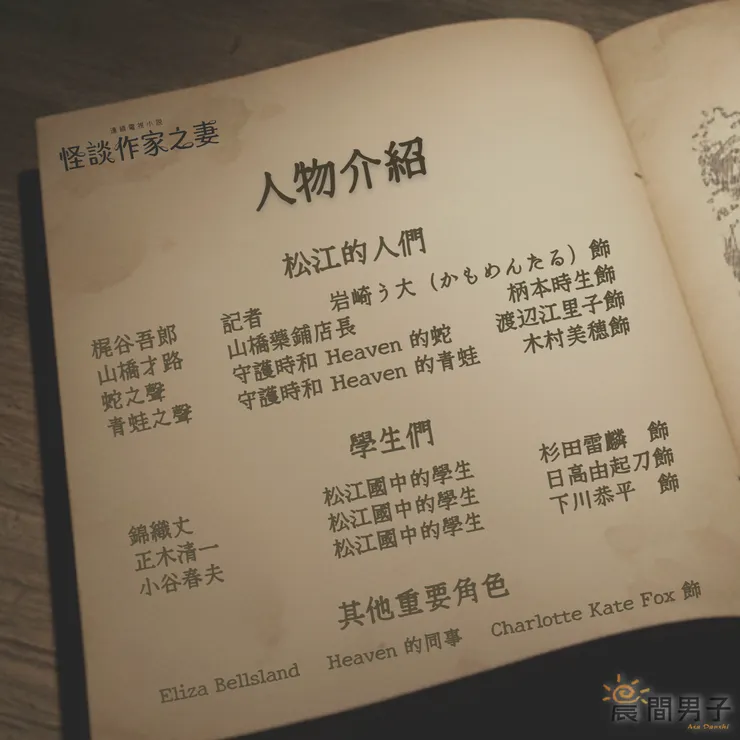 連續電視小說
怪談作家之妻
人物介紹
松江的人們
梶谷吾郎 記者 岩崎う大（かもめんたる）飾
山橋才路 山橋藥鋪店長 柄本時生飾
蛇之聲 守護時和 Heaven 的蛇 渡辺江里子飾
青蛙之聲 守護時和 Heaven 的青蛙 木村美穗飾
學生們
錦織丈 松江國中的學生 杉田雷麟 飾
正木清一 松江國中的學生 日高由起刀飾
小谷春夫 松江國中的學生 下川恭平 飾
其他重要角色
Eliza Bellsland Heaven 的同事 Charlotte Kate Fox 飾
晨間男子
Asa Danshi